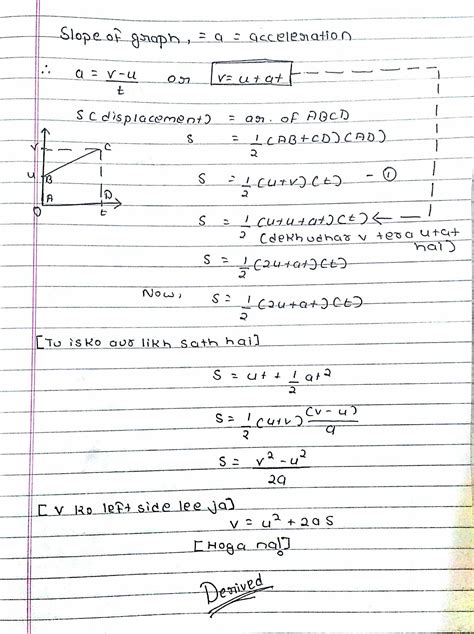 Slope of graph, = a = acceleration
∴ a = v-u/t or v = u + at
S (displacement) = ar. of ABCD
S = 1/2 (AB+CD)(AD)
v C
u B
A D
O t
S = 1/2 (u+v)(t) - ①
S = 1/2 (u+u+at)(t) ←
(dekh udhar v tera u+at hai)
S = 1/2 (2u+at)(t)
Now, S = 1/2 (2u+at)(t)
[Tu isko aur likh sath hai]
S = ut + 1/2 at²
S = 1/2 (u+v) (v-u)/a
S = v² - u²/2a
[V ko left side lee ja]
v = u² + 2as
[Hoga na!]
Derived